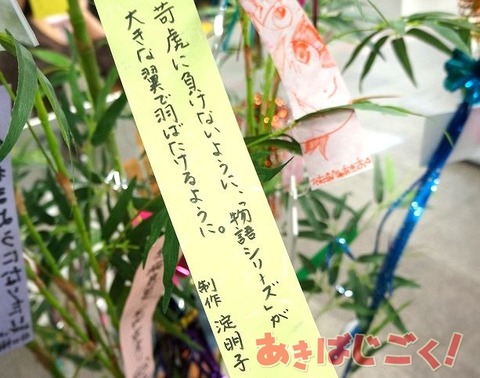 苛虎に負けないように、「物語シリーズ」が
大きな翼で羽ばたけるように。
制作 淀明子
あきばじごく!